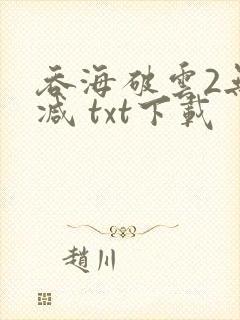 吞海破雲2無
減 txt下載
趙川